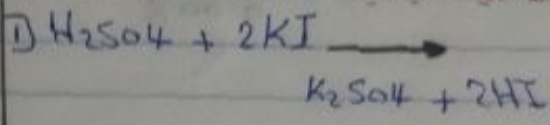 1) H2SO4 + 2KI →
K2SO4 + 2HI